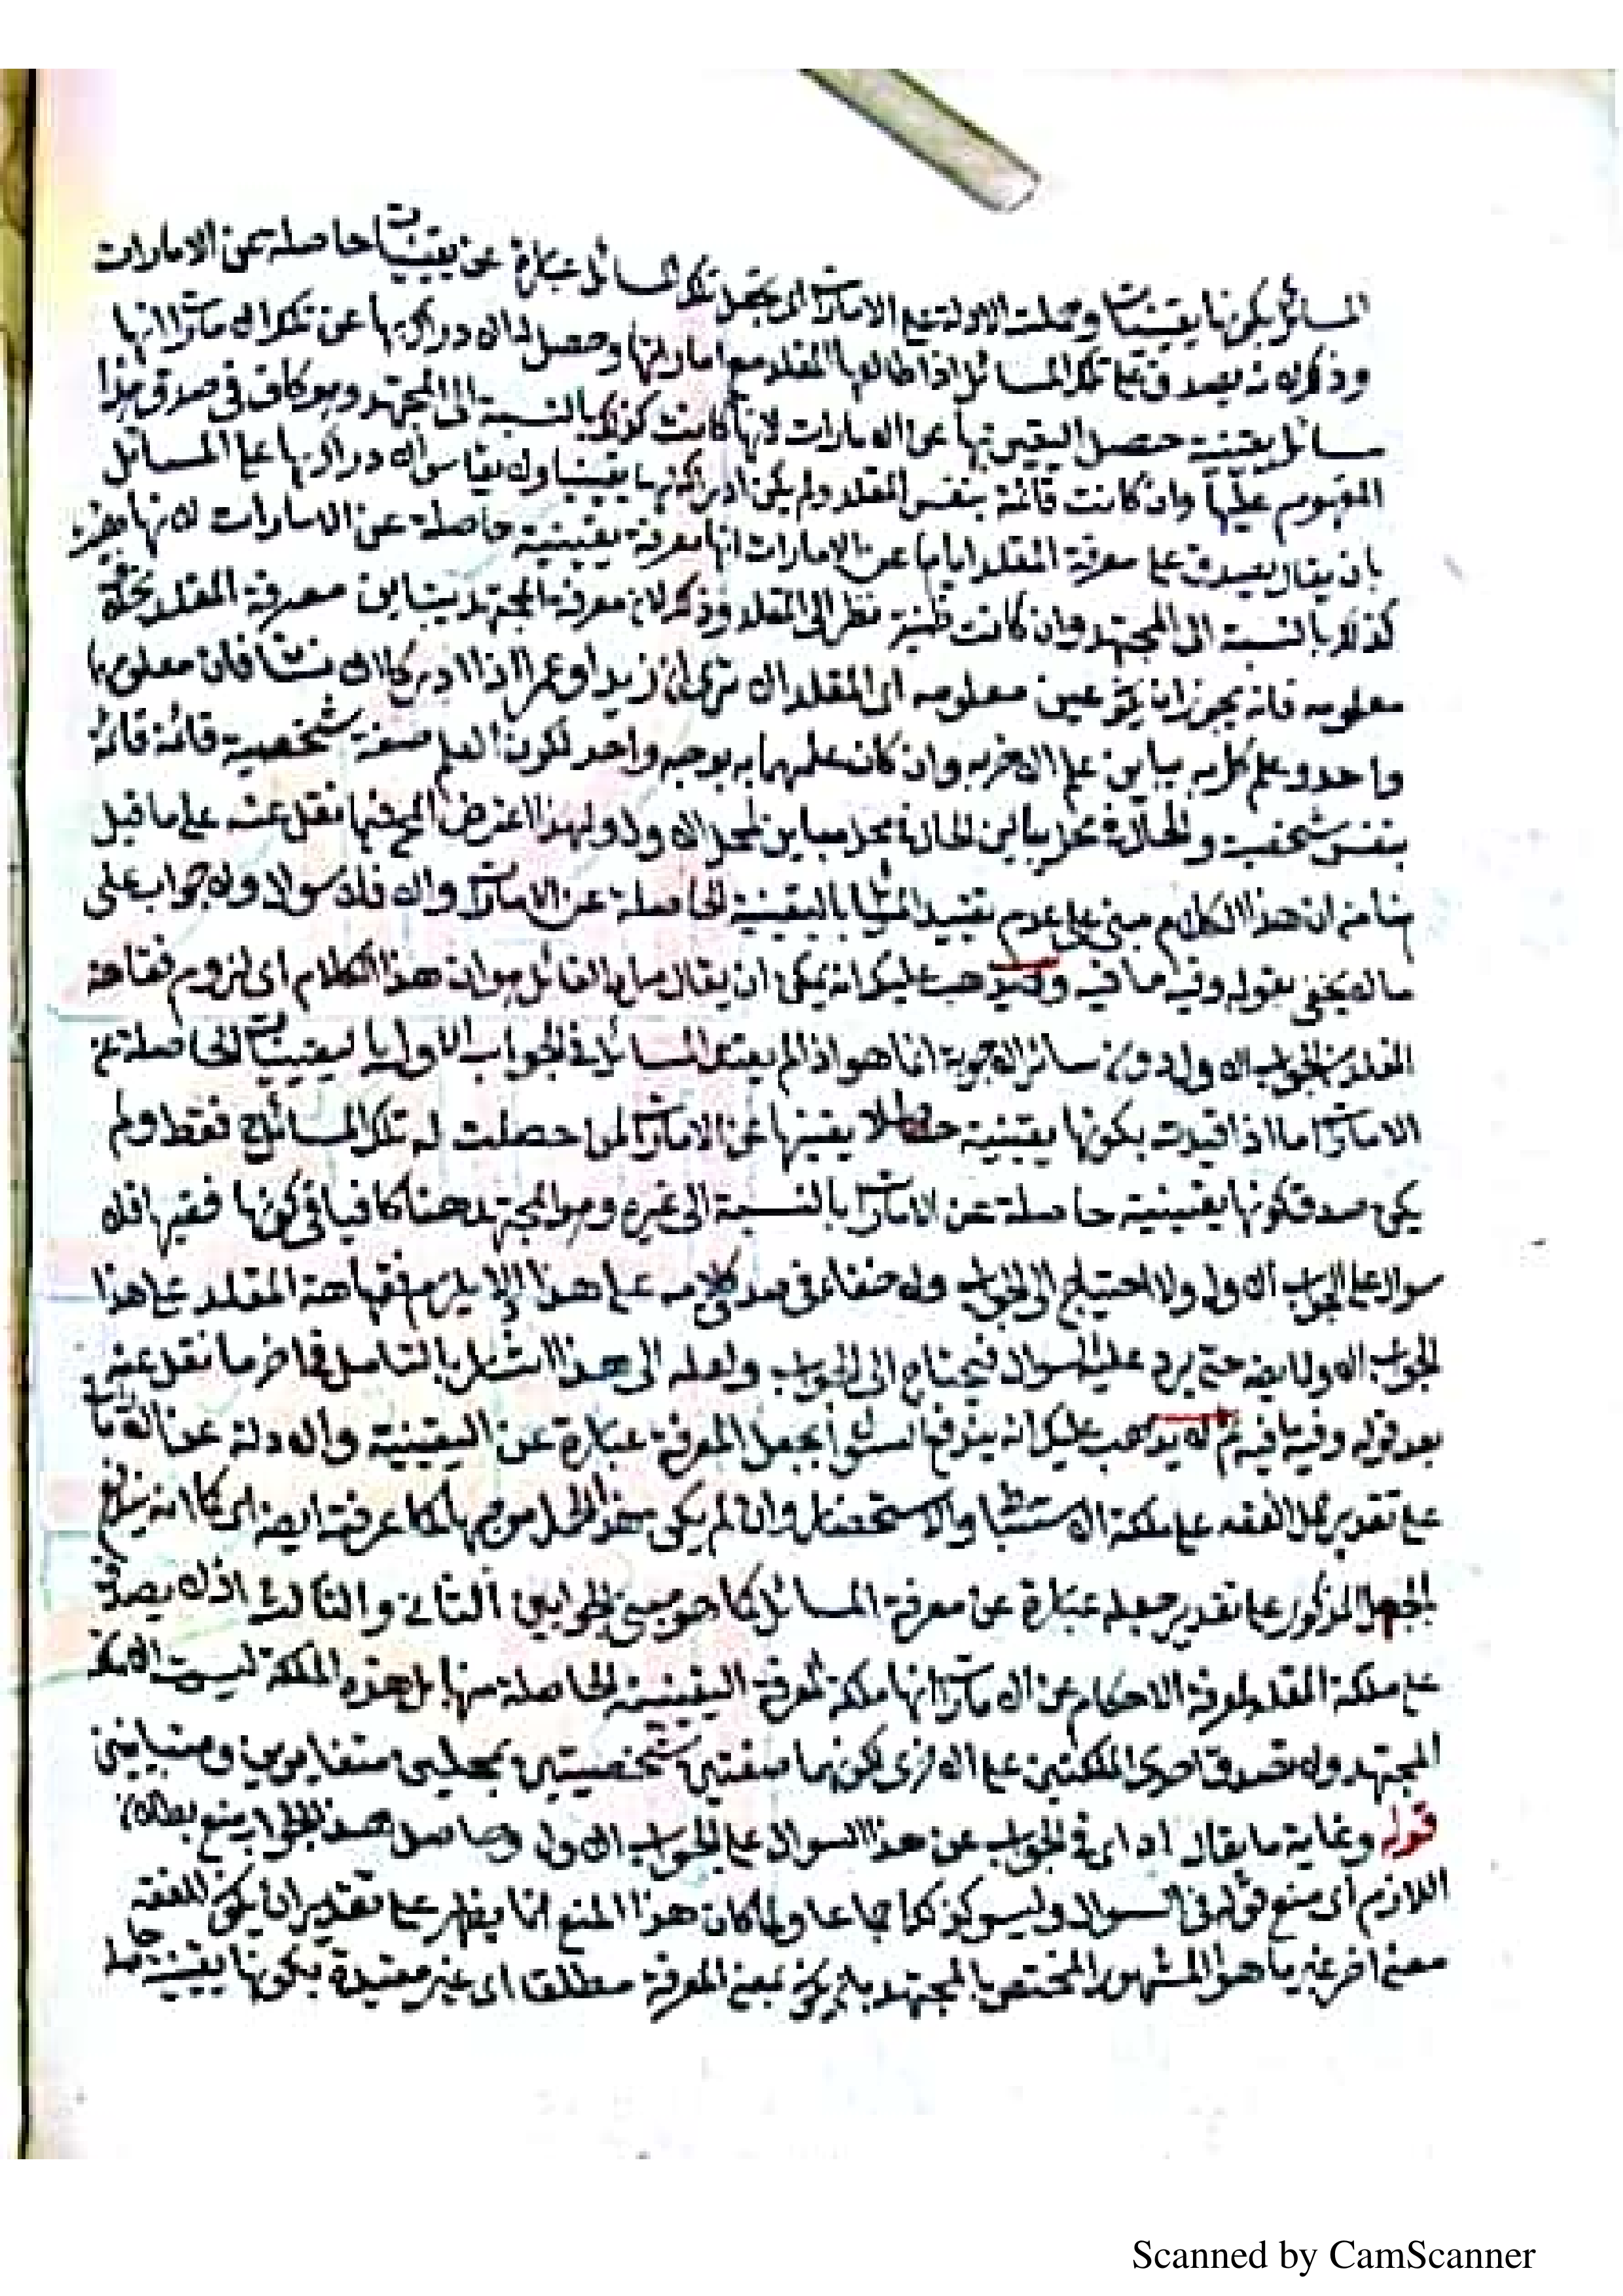 المسائل بكونها يقينيات وحملت الادلة على الامارات اى بجعل تلك المسائل عبارة عن يقينيات حاصلة عن الامارات
وذلك لانه يصدق على تلك المسائل اذا طالعها المقلد مع اماراتها وحصل له الادراك بها عن تلك الامارات انها
مسائل يقينية حصل اليقين بها عن الامارات لانها كانت كذلك بالنسبة الى المجتهد وهو كاف فى صدق هذا
المفهوم عليها وان كانت قائمة بنفس المقلد ولم يكن ادراكه لها يقينيا ولا يقاس الادراك بها على المسائل
بان يقال يصدق على معرفة المقلد اياها عن الامارات انها معرفة يقينية حاصلة عن الامارات لانها
كذلك بالنسبة الى المجتهد وان كانت ظنية نظرا الى المقلد وذلك لان معرفة المجتهد يباين معرفة المقلد بخلاف
معلومه فانه يجوز ان يكون عين معلومه اى المقلد الا ترى ان زيدا وعمرا اذا ادركا الانسان فان معلومهما
واحد وعلم كل به يباين علم الاخر به وان كان علمهما به بوجه واحد لكون العلم صفة شخصية قائمة
بنفس شخصية والحالة بمحل يباين الحالة بمحل مباين للمحل الاول ولهذا اعترض المحشى فيما نقل عنه على ما قيل
هنا من ان هذا الكلام مبنى على عدم تقييد المسائل باليقينية الحاصلة عن الامارات والا فلا سؤال ولا جواب على
ما لا يخفى بقوله وفيه ما فيه ولا يذهب عليك انه يمكن ان يقال مراد القائل هو ان هذا الكلام اى لزوم فقاهة
المقلد على الجواب الاول دون سائر الاجوبة انما هو اذا لم يقيد المسائل فى الجواب الاول باليقينيات الحاصلة عن
الامارات اما اذا قيدت بكونها يقينية حاصلا يقينها عن الامارات لمن حصلت له تلك المسائل فقط ولم
يكن صدق كونها يقينية حاصلة عن الامارات بالنسبة الى غيره وهو المجتهد هنا كافيا فى كونها فقيها فلا
سؤال على الجواب الاول ولا احتياج الى الجواب ولا خفاء فى صدق كلامه على هذا اذ لا يلزم فقاهة المقلد على هذا
الجواب الاول ايضا حتى يرد عليه السؤال فيحتاج الى الجواب ولعله الى هذا اشار بالتامل فى اخر ما نقل عنه
بعد قوله وفيه ما فيه ثم لا يذهب عليك انه يندفع السؤال بجعل المعرفة عبارة عن اليقينية والادلة عن الامارات
على تقدير حمل الفقه على ملكة الاستنباط والاستحضار وان لم يكن هذا الحمل موجها كما عرفته ايضا اى كما انه يندفع
بالجعل المذكور على تقدير جعله عبارة عن معرفة المسائل كما هو مبنى الجوابين الثانى والثالث اذ لا يصدق
على ملكة المقلد لمعرفة الاحكام عن الامارات انها ملكة لمعرفة اليقينية الحاصلة منها بل هذه الملكة ليست الا ملكة
المجتهد ولا تصدق احدى الملكتين على الاخرى لكونهما صفتين شخصيتين بمحلين متغايرين ومتباينين
قوله وغاية ما يقال اه اى فى الجواب عن هذا السؤال على الجواب الاول وحاصل هذا الجواب منع بطلان
اللازم اى منع قوله فى السؤال وليس كذلك اجماعا ولما كان هذا المنع انما يظهر على تقدير ان يكون للفقه
معنى اخر غير ما هو المشهور المختص بالمجتهد بان يكون بمعنى المعرفة مطلقا اى غير مقيدة بكونها يقينية حاصلة
Scanned by CamScanner